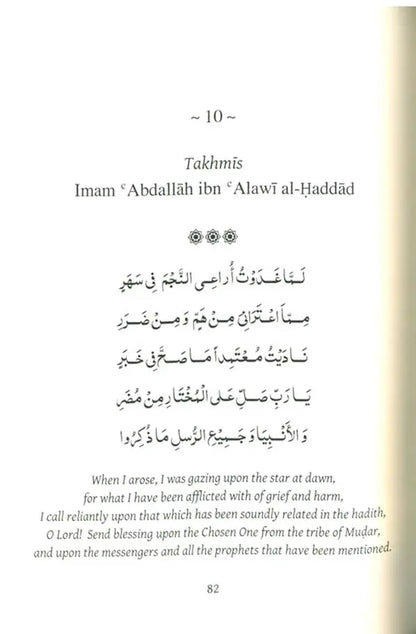 ~ 10 ~
Takhmīs
Imam ʿAbdallāh ibn ʿAlawī al-Ḥaddād
لَمَّا غَدَوْتُ أُرَاعِي النَّجْمَ فِي سَهَرٍ
مِمَّا اعْتَرَانِي مِنْ هَمٍّ وَمِنْ ضَرَرِ
نَادَيْتُ مُعْتَمِداً مَا صَحَّ فِي خَبَرٍ
يَا رَبِّ صَلِّ عَلَى الْمُخْتَارِ مِنْ مُضَرٍ
وَالأَنْبِيَا وَجَمِيْعِ الرُّسلِ مَا ذُكِرُوا
When I arose, I was gazing upon the star at dawn,
for what I have been afflicted with of grief and harm,
I call reliantly upon that which has been soundly related in the hadith,
O Lord! Send blessing upon the Chosen One from the tribe of Muḍar,
and upon the messengers and all the prophets that have been mentioned.
82